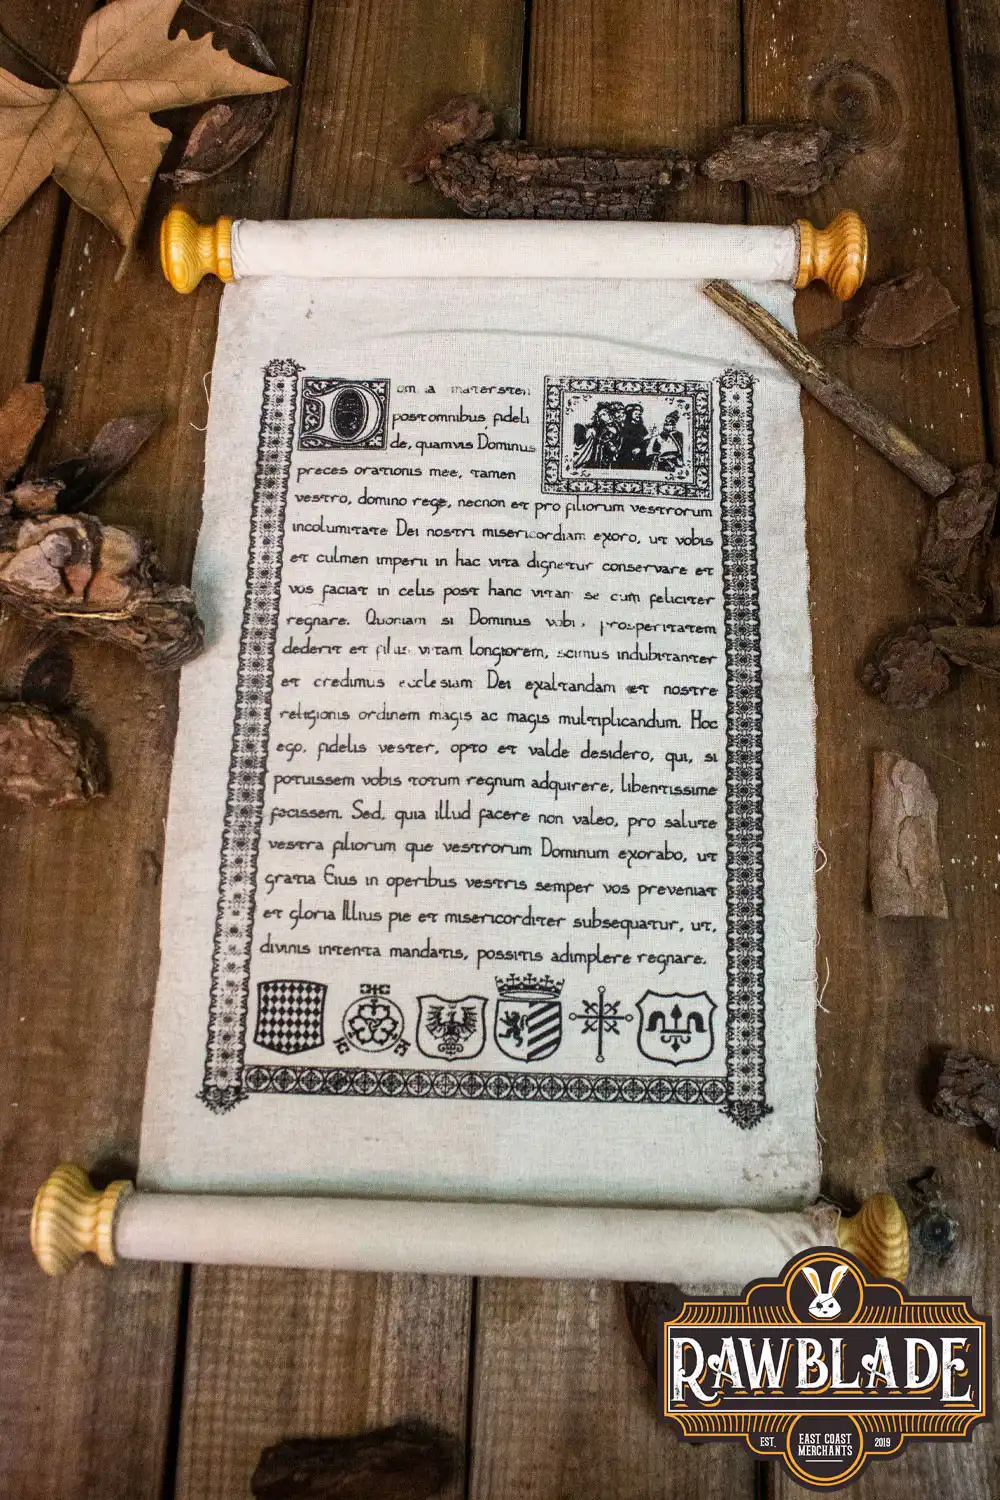 Dom a mater sten
post omnibus, fideli
de, quamvis Dominus
preces orationis mee, tamen
vestro, domino rege, necnon et pro filiorum vestrorum
incolumitate Dei nostri misericordiam exoro, ut vobis
et culmen imperii in hac vita dignetur conservare et
vos faciat in celis post hanc vitam se cum feliciter
regnare. Quoniam si Dominus vobi, prosperitatem
dederit et filiis vitam longiorem, scimus indubitanter
et credimus ecclesiam Dei exaltandam et nostre
religionis ordinem magis ac magis multiplicandum. Hoc
ego, fidelis vester, opto et valde desidero, qui, si
potuissem vobis totum regnum adquirere, libentissime
facissem. Sed, quia illud facere non valeo, pro salute
vestra filiorum que vestrorum Dominum exorabo, ut
gratia Eius in operibus vestris semper vos preveniat
et gloria Illius pie et misericorditer subsequatur, ut,
divinis intenta mandatis, possitis adimplere regnare.
RAWBLADE
EST. EAST COAST MERCHANTS 2019